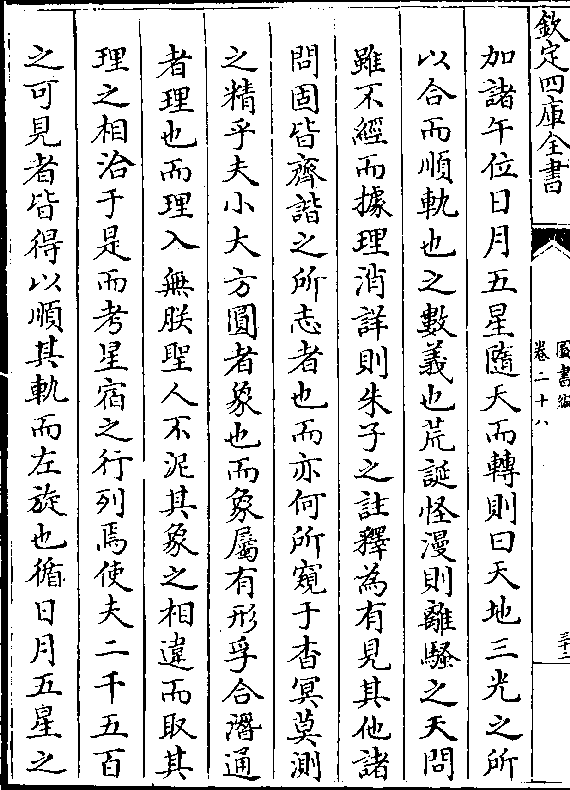 欽定四庫全書
圖書編
卷二十八
三十二
加諸午位日月五星隨天而轉則曰天地三光之所
以合而順軌也之數義也荒誕怪漫則離騷之天問
雖不經而據理消詳則朱子之註釋為有見其他諸
問固皆齊諧之所志者也而亦何所窺于杳冥莫測
之精乎夫小大方圓者象也而象屬有形孚合潛通
者理也而理入無朕聖人不泥其象之相違而取其
理之相治于是而考星宿之行列焉使夫二千五百
之可見者皆得以順其軌而左旋也循日月五星之